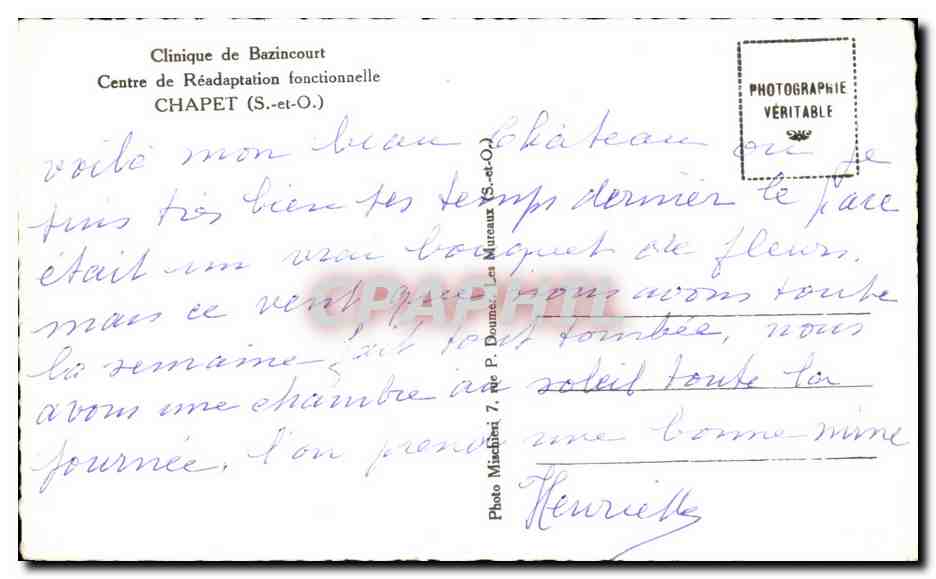 Clinique de Bazincourt
Centre de Réadaptation fonctionnelle
CHAPET (S.-et-O.)
PHOTOGRAPHIE
VÉRITABLE
voilà mon beau Château ou je
suis très bien ces temps dernier le parc
était un vrai bouquet de fleurs.
mais ce vent que nous avons toute
la semaine fait tout tombée, nous
avons une chambre au soleil toute la
journée. l'on prend une bonne mine
Henriette
Photo Mischieri 7, rue P. Doumer Les Mureaux (S.-et-O.)
CPAPHIL